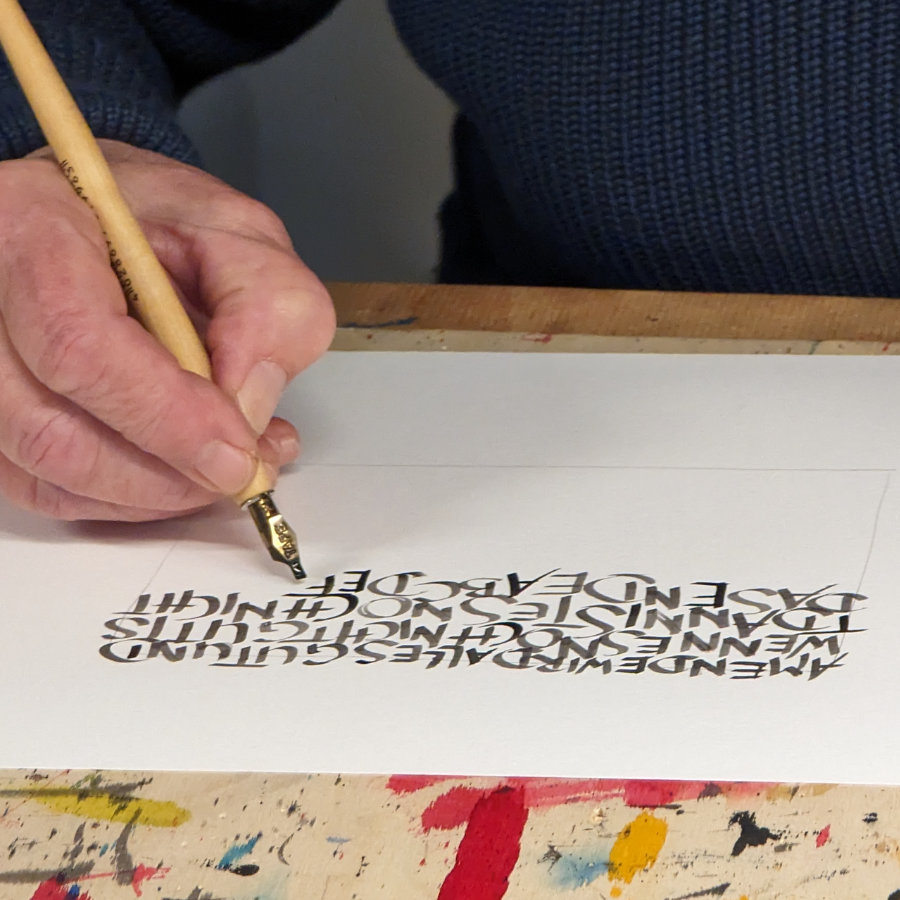 AMENDEWIRDALLESGUTUND
WENNESNOCHNICHTGUTIS
TDANNISTESNOCHNICHT
DASENDEABCDEF